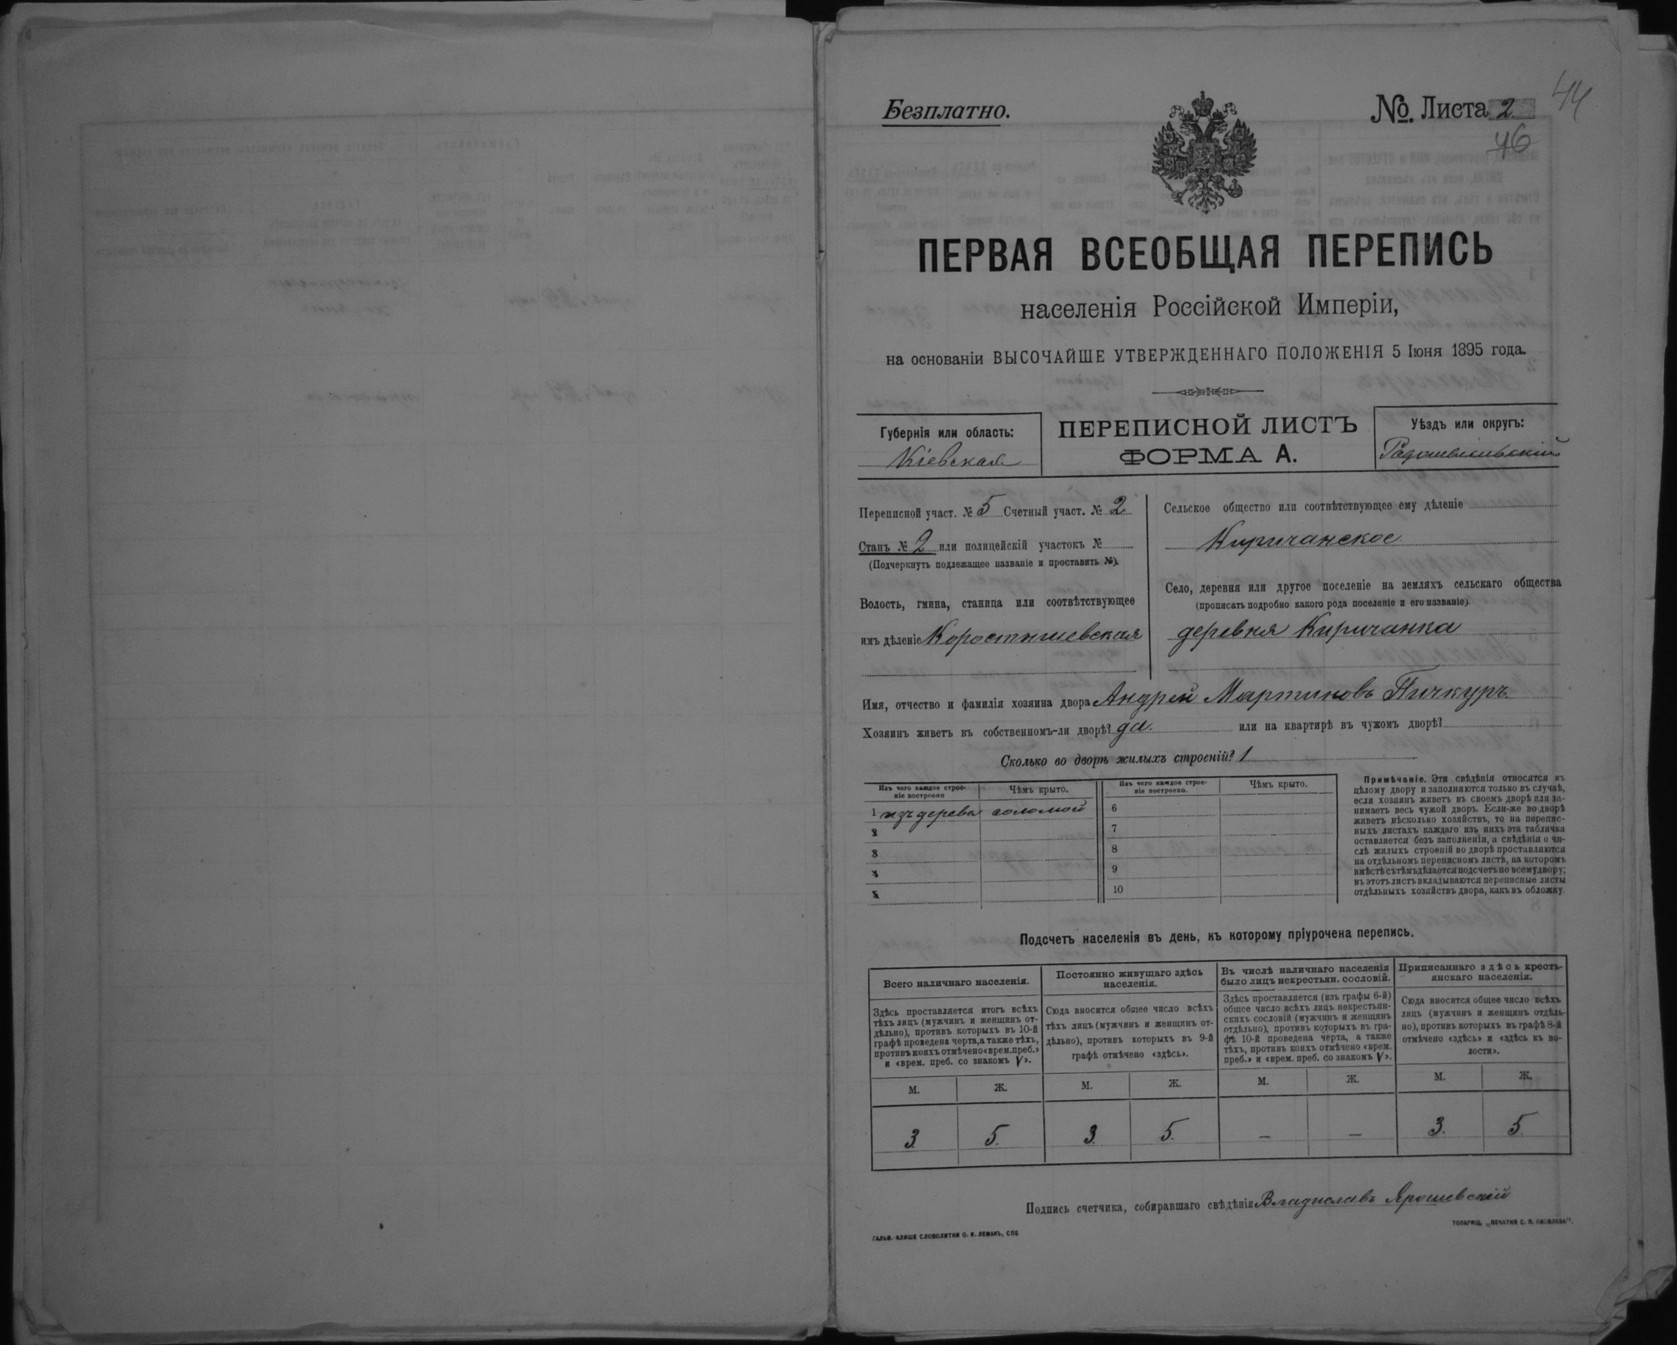 Безплатно.
№ Листа 2
44
46
ПЕРВАЯ ВСЕОБЩАЯ ПЕРЕПИСЬ
населенія Россійской Имперіи,
на основаніи ВЫСОЧАЙШЕ УТВЕРЖДЕННАГО ПОЛОЖЕНІЯ 5 Іюня 1895 года.
Губернія или область:
Кіевская
ПЕРЕПИСНОЙ ЛИСТЪ
ФОРМА А.
Уѣздъ или округъ:
Радомысльскій
Переписной участ. № 5 Счетный участ. № 2
Станъ № 2 или полицейскій участокъ №
(Подчеркнуть подлежащее названіе и проставить №).
Волость, гмина, станица или соотвѣтствующее
имъ дѣленіе Коростышевская
Сельское общество или соотвѣтствующее ему дѣленіе
Киричанское
Село, деревня или другое поселеніе на земляхъ сельскаго общества
(прописать подробно какого рода поселеніе и его названіе)
деревня Киричанка
Имя, отчество и фамилія хозяина двора Андрей Мартиновъ Пичкуръ
Хозяинъ живетъ въ собственномъ-ли дворѣ? да. или на квартирѣ въ чужомъ дворѣ?
Сколько во дворѣ жилыхъ строеній? 1
Изъ чего каждое строе-
ніе построено
Чѣмъ крыто.
Изъ чего каждое строе-
ніе построено.
Чѣмъ крыто.
1 изъ дерева соломой 6
2 7
3 8
4 9
5 10
Примѣчаніе. Эти свѣдѣнія относятся къ
цѣлому двору и заполняются только въ случаѣ,
если хозяинъ живетъ въ своемъ дворѣ или за-
нимаетъ весь чужой дворъ. Если-же во дворѣ
живетъ нѣсколько хозяйствъ, то на перепис-
ныхъ листахъ каждаго изъ нихъ эта табличка
оставляется безъ заполненія, а свѣдѣнія о чи-
слѣ жилыхъ строеній во дворѣ проставляются
на отдѣльномъ переписномъ листѣ, на которомъ
вмѣстѣ съ тѣмъ дѣлается подсчетъ по всему двору;
въ этотъ листъ вкладываются переписные листы
отдѣльныхъ хозяйствъ двора, какъ въ обложку.
Подсчетъ населенія въ день, къ которому пріурочена перепись.
Всего наличнаго населенія.
Здѣсь проставляется итогъ всѣхъ
тѣхъ лицъ (мужчинъ и женщинъ от-
дѣльно), противъ которыхъ въ 10-й
графѣ проведена черта, а также тѣхъ,
противъ коихъ отмѣчено «врем. преб.»
и «врем. преб. со знакомъ V».
Постоянно живущаго здѣсь
населенія.
Сюда вносится общее число всѣхъ
тѣхъ лицъ (мужчинъ и женщинъ от-
дѣльно), противъ которыхъ въ 9-й
графѣ отмѣчено «здѣсь».
Въ числѣ наличнаго населенія
было лицъ некрестьян. сословій.
Здѣсь проставляется (изъ графы 6-й)
общее число всѣхъ лицъ некрестьян-
скихъ сословій (мужчинъ и женщинъ
отдѣльно), противъ которыхъ въ гра-
фѣ 10-й проведена черта, а также
тѣхъ, противъ коихъ отмѣчено «врем.
преб.» и «врем. преб. со знакомъ V».
Приписаннаго здѣсь кресть-
янскаго населенія.
Сюда вносится общее число всѣхъ
лицъ (мужчинъ и женщинъ отдѣль-
но), противъ которыхъ въ графѣ 8-й
отмѣчено «здѣсь» и «здѣсь въ во-
лости».
М. Ж. М. Ж. М. Ж. М. Ж.
3 5. 3. 5. – – 3. 5.
Подпись счетчика, собиравшаго свѣдѣнія Владиславъ Ярошевскій
ГАЛЬВ. КЛИШЕ СЛОВОЛИТНИ О. И. ЛЕМАНЪ, СПБ
ТОВАРИЩ. „ПЕЧАТНЯ С. П. ЯКОВЛЕВА".